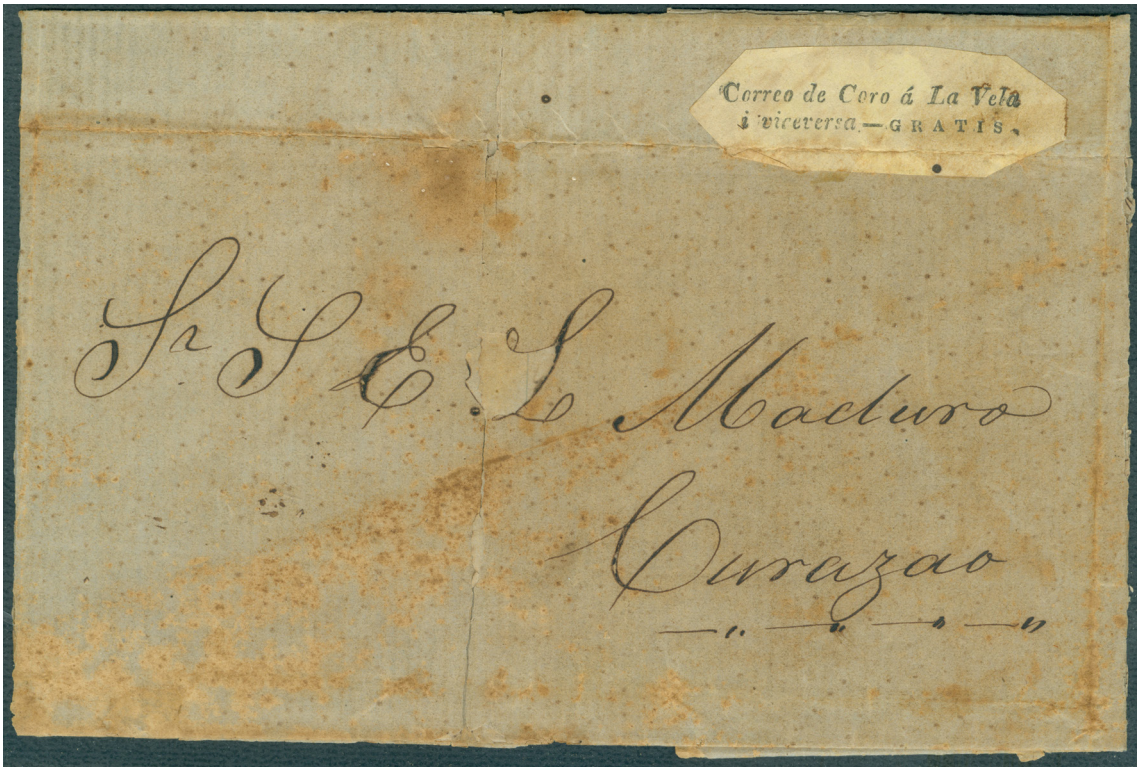 Correo de Coro á La Vela
i viceversa.—GRATIS.
Sr S E L Maduro
Curazao